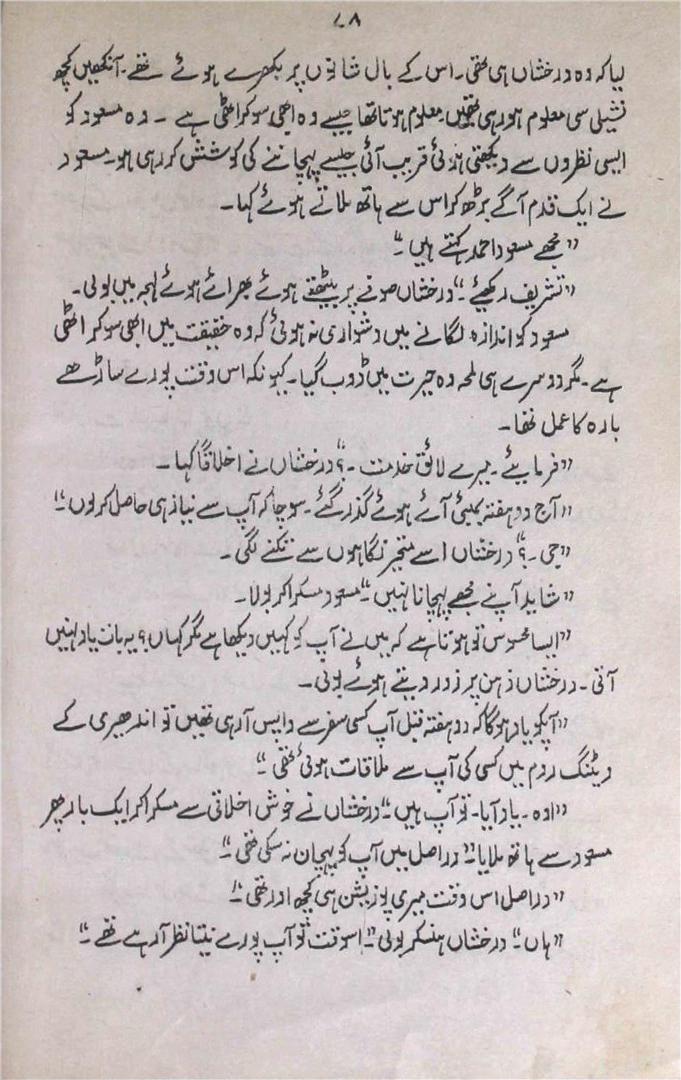 ۷۸
لیا کہ وہ درخشاں ہی تھی۔ اس کے بال شانوں پر بکھرے ہوئے تھے۔ آنکھیں کچھ
نشیلی سی معلوم ہو رہی تھیں۔ معلوم ہوتا تھا جیسے وہ ابھی سو کر اٹھی ہے ۔ وہ مسعود کو
ایسی نظروں سے دیکھتی ہوئی قریب آئی جیسے پہچاننے کی کوشش کر رہی ہو۔ مسعود
نے ایک قدم آگے بڑھ کر اس سے ہاتھ ملاتے ہوئے کہا۔
”مجھے مسعود احمد کہتے ہیں۔“
”تشریف رکھیئے۔“ درخشاں صوفے پر بیٹھتے ہوئے بھرائے ہوئے لہجہ میں بولی۔
مسعود کو اندازہ لگانے میں دشواری نہ ہوئی کہ وہ حقیقت میں ابھی سو کر اٹھی
ہے۔ مگر دوسرے ہی لمحہ وہ حیرت میں ڈوب گیا۔ کیونکہ اس وقت پورے ساڑھے
بارہ کا عمل تھا۔
”فرمایئے۔ میرے لائق خدمت ۔؟“ درخشاں نے اخلاقاً کہا۔
”آج دو ہفتہ بمبئی آئے ہوئے گذر گئے۔ سوچا کہ آپ سے نیاز ہی حاصل کر لوں۔“!
”جی۔؟“ درخشاں اسے متحیر نگاہوں سے تکنے لگی۔
”شاید آپ نے مجھے پہچانا نہیں“ مسعود مسکرا کر بولا۔
”ایسا محسوس تو ہوتا ہے کہ میں نے آپ کو کہیں دیکھا ہے مگر کہاں؟ یہ بات یاد نہیں
آتی۔ درخشاں ذہن پر زور دیتے ہوئے بولی۔
”آپکو یاد ہوگا کہ دو ہفتہ قبل آپ کسی سفر سے واپس آ رہی تھیں تو اندھیری کے
ویٹنگ روم میں کسی کی آپ سے ملاقات ہوئی تھی۔“
”اوہ۔ یاد آیا۔ تو آپ ہیں۔“ درخشاں نے خوش اخلاقی سے مسکرا کر ایک بار پھر
مسعود سے ہاتھ ملایا۔ ”دراصل میں آپ کو پہچان نہ سکی تھی۔“
”دراصل اس وقت میری پوزیشن ہی کچھ اور تھی۔“!
”ہاں“ درخشاں ہنسکر بولی۔ ”اسوقت تو آپ پورے نیتا نظر آ رہے تھے۔“